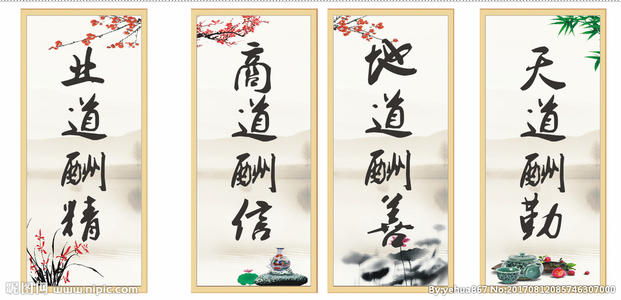 天道酬勤
地道酬善
商道酬信
业道酬精
昵图网 www.nipic.com
By:yehua867 No:20170812085746307000